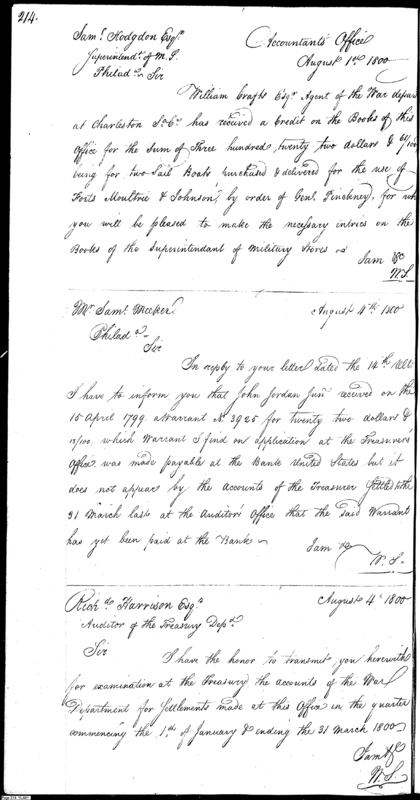 214.
Saml. Hodgdon Esqr.
Superintendt. of M. S.
Philada. Sir
Accountants Office
August 1st 1800
William Crafts Esqr. Agent of the War depar
at Charleston So. Ca. has received a Credit on the Books of this
Office for the Sum of Three hundred, twenty two dollars &
being for two Sail Boats purchased & delivered for the use of
Forts Moultrie & Johnson, by order of Genl. Pinckney, for wh
you will be pleased to make the necessary entries on the
Books of the Superintendant of Military Stores
I am &c
W. S.
Mr. Saml. Meeker
August 4th. 1800
Philada.
Sir
In reply to your letter dated the 14th. Ulto.
I have to inform you that John Jordan Junr. received on the
15 April 1799. a Warrant No. 3925 for twenty two dollars &
/100, which Warrant I find on application at the Treasurers
Office was made payable at the Bank United States but it
does not appear by the accounts of the Treasurer Settled to the
31 March last at the Auditor's Office that the Said Warrant
has yet been paid at the Bank
I am &c
W. S.
Richd. Harrison Esqr.
August 4th 1800
Auditor of the Treasury Dept.
Sir
I have the honor to transmit you herewith
for examination at the Treasury the accounts of the War
Department for Settlements made at this Office in the quarter
commencing the 1st. of January & ending the 31 March 1800
I am &c
W. S.